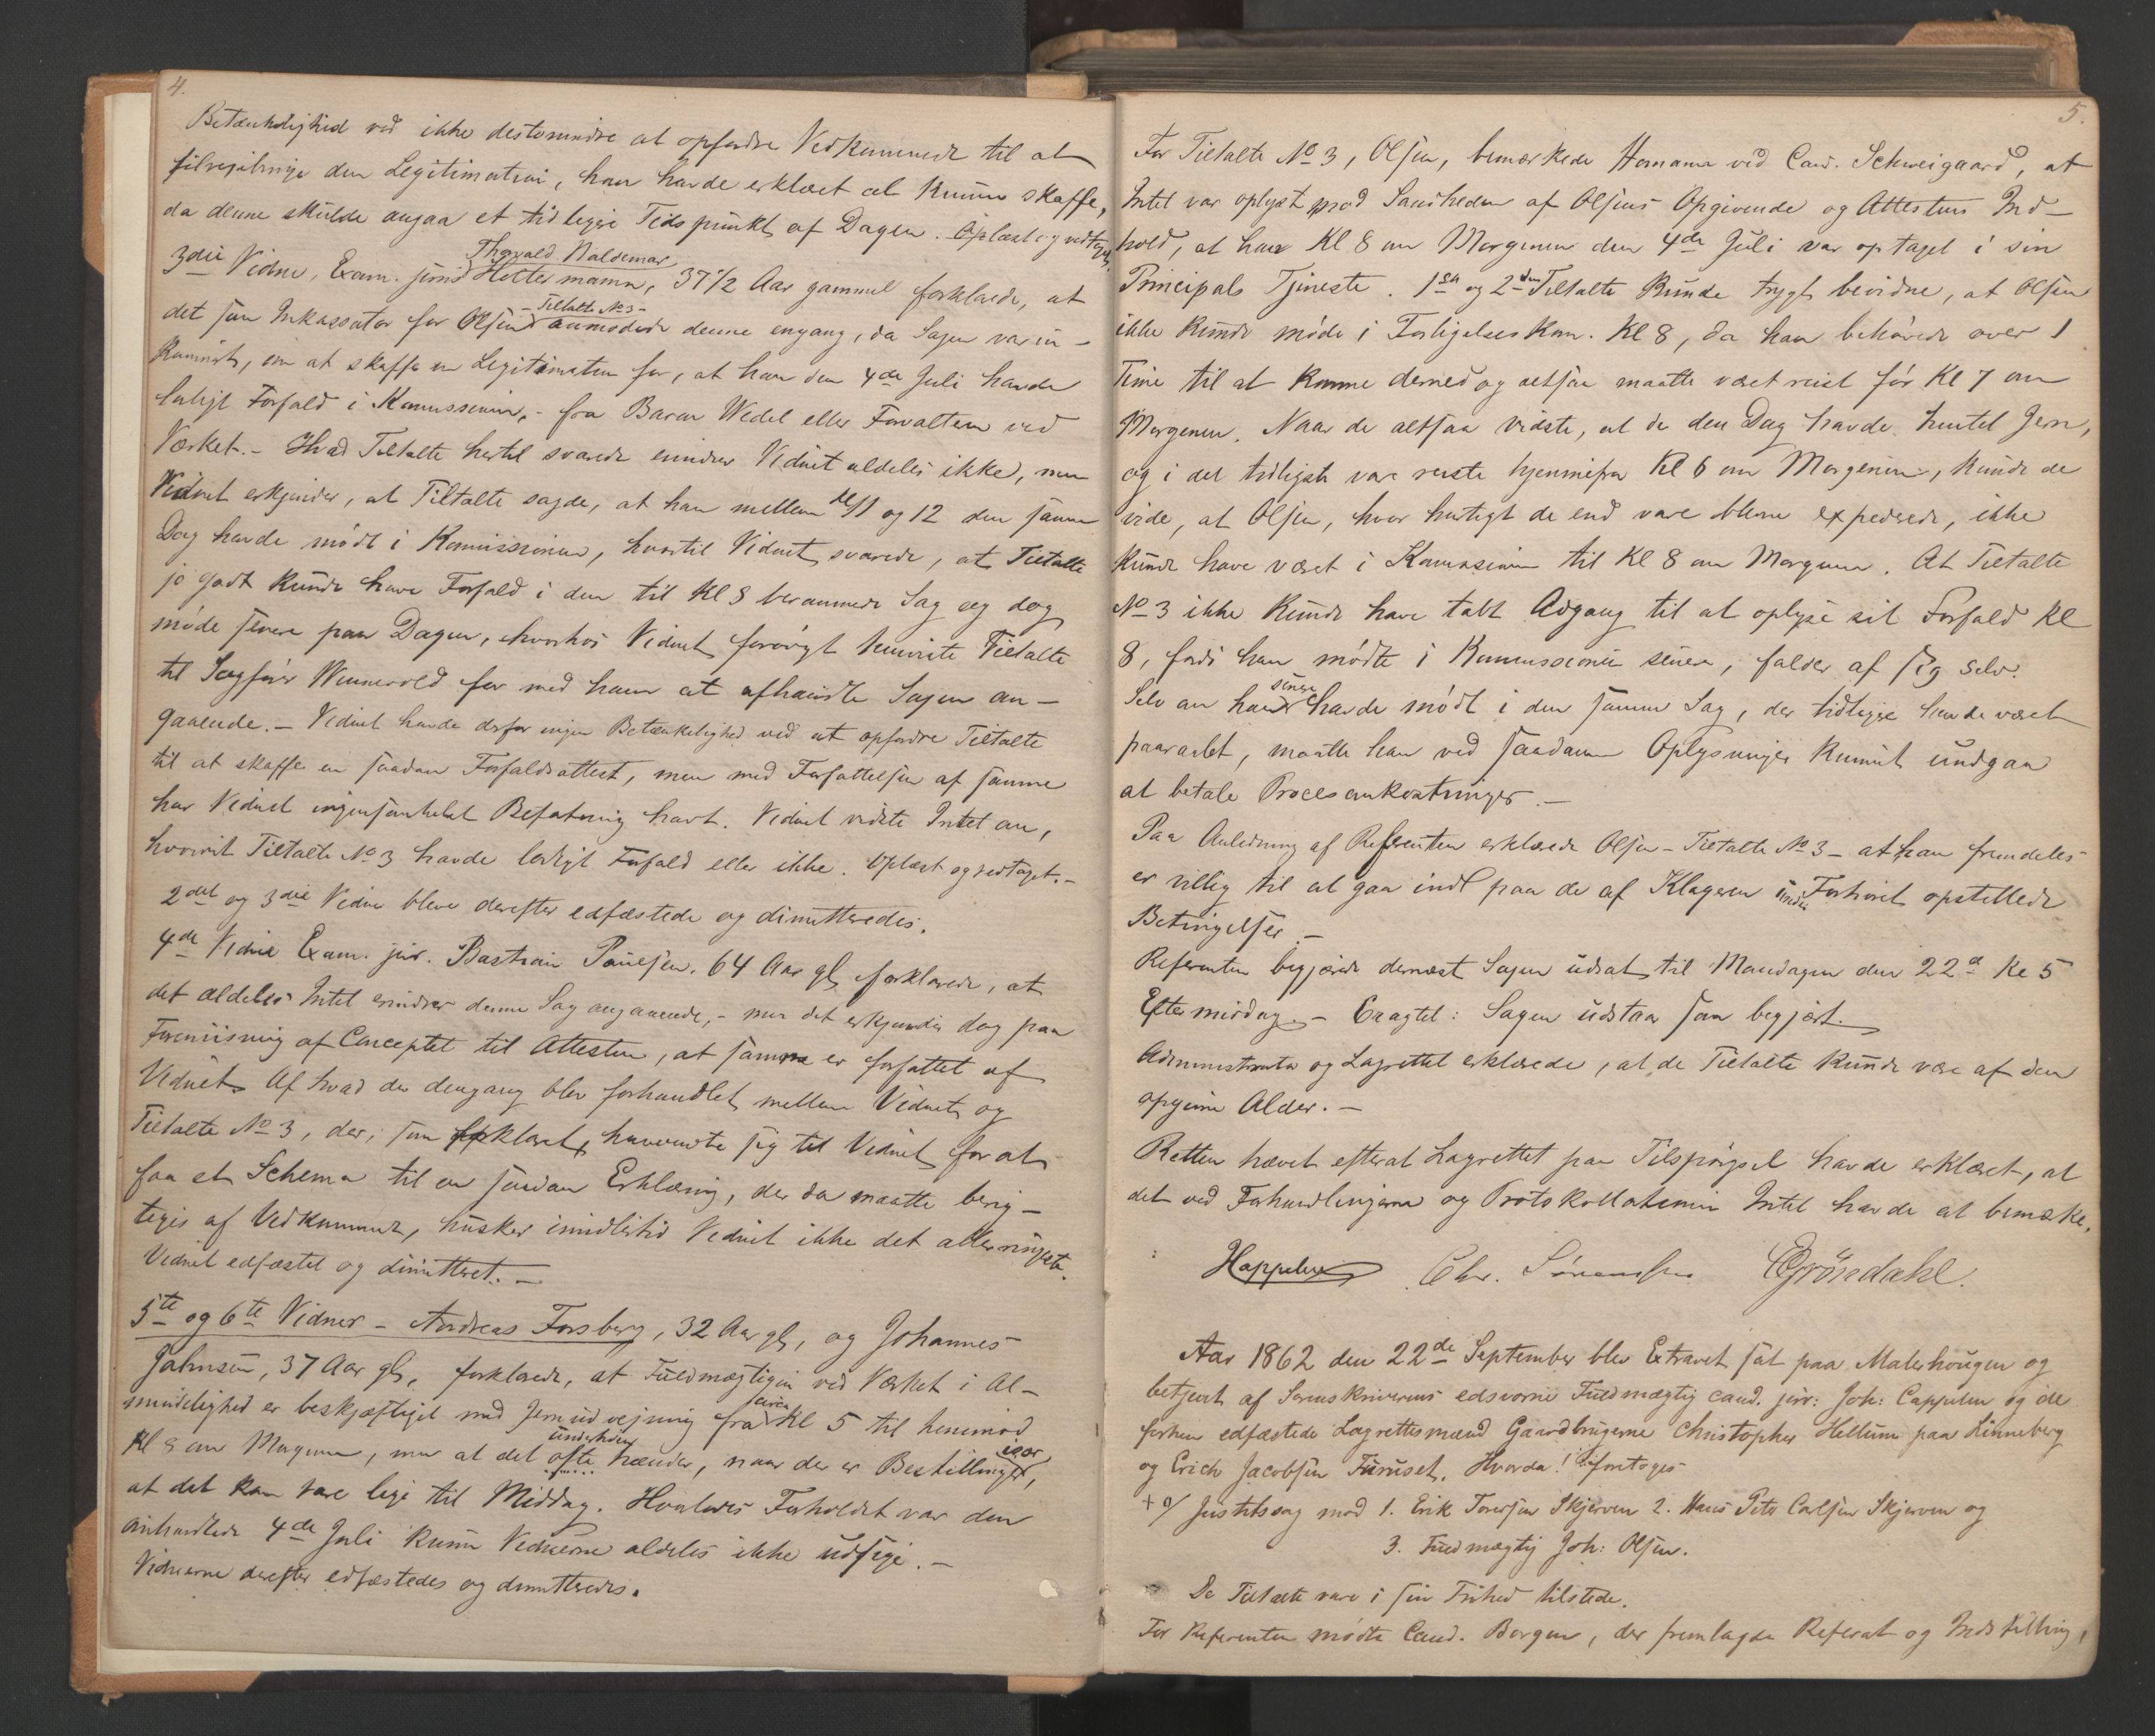 4.
Betænkelighed ved ikke destomindre at opfordre Vedkommende til at
tilveiebringe den Legitimation, han havde erklæret at kunne skaffe,
da denne skulde angaa et tidligere Tidspunkt af Dagen. Oplæst og vedtaget.
Thorvald Valdemar
3die Vidne, Exam. juris Holtermann, 37 1/2 Aar gammel forklarede, at
- Tiltalte No 3 -
det som Inkassator for Olsen anmodede denne engang, da Sagen var in-
kaminert, om at skaffe en Legitimation for, at han den 4de Juli havde
lovligt Forfald i Kommissionen, - fra Baron Wedel eller Forvalteren ved
Værket. - Hvad Tiltalte hertil svarede erindrer Vidnet aldeles ikke, men
Vidnet erkjender, at Tiltalte sagde, at han mellem Kl 11 og 12 den samme
Dag havde mødt i Kommissionen, hvortil Vidnet svarede, at Tiltalte
jo godt kunde have Forfald i den til Kl 8 berammede Sag og dog
møde senere paa Dagen, hvorhos Vidnet forøvrigt henviste Tiltalte
til Sagfører Wennevold for med ham at afhandle Sagen an-
gaaende. - Vidnet havde derfor ingen Betænkelighed ved at opfordre Tiltalte
til at skaffe en saadan Forfaldsattest, men med Forfattelsen af samme
har Vidnet ingensomhelst Befatning havt. Vidnet vidste Intet om,
hvorvidt Tiltalte No 3 havde lovligt Forfald eller ikke. Oplæst og vedtaget. -
2det og 3die Vidne bleve derefter edfæstede og dimitteredes.
4de Vidne Exam. jur. Bastian Pauelsen, 64 Aar gl, forklarede, at
det aldeles Intet erindrer denne Sag angaaende, - men det erkjender dog paa
Foreviisning af Conceptet til Attesten, at samme er forfattet af
Vidnet. Af hvad der dengang blev forhandlet mellem Vidnet og
Tiltalte No 3, der, som forklaret, henvendte sig til Vidnet for at
faa et Schema til en saadan Erklæring, der da maatte berig-
tiges af Vedkommende, husker imidlertid Vidnet ikke det allerringeste.
Vidnet edfæstet og dimitteret. -
5te og 6te Vidner - Andreas Forsberg, 32 Aar gl, og Johannes
Johnsen, 37 Aar gl, forklarede, at Fuldmægtigen ved Værket i Al-
circa
mindelighed er beskjæftiget med Jernudveining fra Kl 5 til henimod
underhaanden især
Kl 8 om Morgenen, men at det ofte hænder, naar der er Bestillinger,
at det kan vare lige til Middag. Hvorledes Forholdet var den
omhandlede 4de Juli kunne Vidnerne aldeles ikke udsige. -
Vidnerne derefter edfæstedes og dimitteredes.
5.
For Tiltalte No 3, Olsen, bemærkede Homann ved Cand. Schweigaard, at
Intet var oplyst mod Sandheden af Olsens Opgivende og Attestens Ind-
hold, at han Kl 8 om Morgenen den 4de Juli var optaget i sin
Principals Tjeneste. 1ste og 2den Tiltalte kunde trygt bevidne, at Olsen
ikke kunde møde i Forligelseskom. Kl 8, da han behøvede over 1
Time til at komme derned og altsaa maatte været reist før Kl 7 om
Morgenen. Naar de altsaa vidste, at de den Dag havde hentet Jern,
og i det tidligste vare reiste hjemmefra Kl 6 om Morgenen, kunde de
vide, at Olsen, hvor hurtigt de end vare blevne expederede, ikke
kunde have været i Kommissionen til Kl 8 om Morgenen. At Tiltalte
No 3 ikke kunde have tabt Adgang til at oplyse sit Forfald Kl
8, fordi han mødte i Kommissionen senere, falder af sig selv.
senere
Selv om han havde mødt i den samme Sag, der tidligere havde været
paaraabt, maatte han ved saadanne Oplysninger kunnet undgaa
at betale Procesomkostninger. -
Paa Anledning af Referenten erklærede Olsen - Tiltalte No 3 - at han fremdeles
er villig til at gaa ind paa de af Klageren under Forhøret opstillede
Betingelser. -
Referenten begjærede dernæst Sagen udsat til Mandagen den 22de Kl 5
Eftermiddag. - Eragtet: Sagen udstaar som begjært.
Administrator og Lagrettet erklærede, at de Tiltalte kunde være af den
opgivne Alder. -
Retten hævet efterat Lagrettet paa Tilspørgsel havde erklæret, at
det ved Forhandlingerne og Protokollationen Intet havde at bemærke.
JCappelen Chr. Sørensen EGröndahl.
Aar 1862 den 22de September blev Extraret sat paa Malerhougen og
betjent af Sorenskriverens edsvorne Fuldmægtig cand. jur: Joh: Cappelen og de
forhen edfæstede Lagrettesmænd Gaardbrugerne Christopher Hellum paa Linneberg
og Erich Jacobsen Furuset. Hvorda! foretoges
+ o/ Justitssag mod 1. Erik Toresen Skjerven 2. Hans Peter Carlsen Skjerven og
3. Fuldmægtig Joh: Olsen.
De Tiltalte vare i sin Frihed tilstede.
For Referenten mødte Cand. Borgen, der fremlagde Referat og Indstilling,